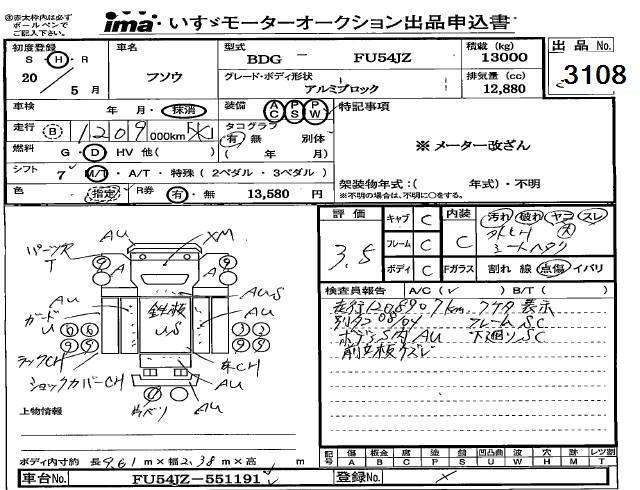 ㊟赤太枠内は必ず
ボールペンで
ご記入下さい。
ima いすゞモーターオークション出品申込書
初度登録
S・H・R
20 年 5 月
車名
フソウ
型式
BDG － FU54JZ
グレード・ボディ形状
アルミブロック
積載 (kg)
13000
排気量 (cc)
12,880
出品 No.
3108
車検 年 月・抹消
装備 AC PS PW
特記事項
走行 B 1209 000km
タコグラフ
有 無 別体
( 年 月)
※ メーター改ざん
燃料 G・D HV 他( )
シフト 7 M/T・A/T・特殊(2ペダル・3ペダル)
架装物年式:( 年式)・不明
※不明の場合は、不明に○をする。
色 指定 R券 有・無 13,580 円
評価
3.5
キャブ C
フレーム C
ボディ C
内装 C
汚れ 破れ ヤコ スレ
大
シートヘタリ
Fガラス 割れ 線 点傷 イバリ
検査員報告 A/C( ✓ ) B/T( )
走行1208907km
表示
フレームSC
ボデーS内AU 下廻りSC
AU
XM
T
A
A
AU
AUS
ガード
U
鉄板
US
AU
ラックCH
ショックカバーCH
床CH
AU
AU
上物情報
ボディ内寸約 長9.61m×幅2.38m×高 m
記号 傷A 板金B 腐C 塗P 錆S 凹凸曲U 波W 穴H 跡M レツ割T
車台No. FU54JZ-551191
登録No.